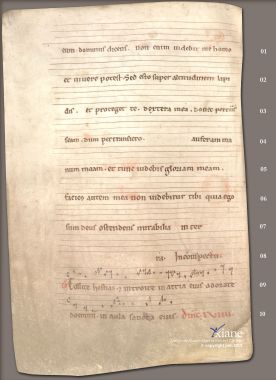 eum dominus dicens. non enim uidebit me homo 01
et uiuere potest. Sed esto super altitudinem lapi 02
dis. et proteget te dextera mea. donec 03
dum pertransiero. auferam ma 04
num meam. et tunc uidebis gloriam meam. 05
facies autem mea non uidebitur tibi quia ego 06
sum deus ostendens mirabilia in ter 07
ra. Inconspectu 08
Tollite hostias et introite in atria eius adorate 09
dominum in aula sancta eius. 10
xiane